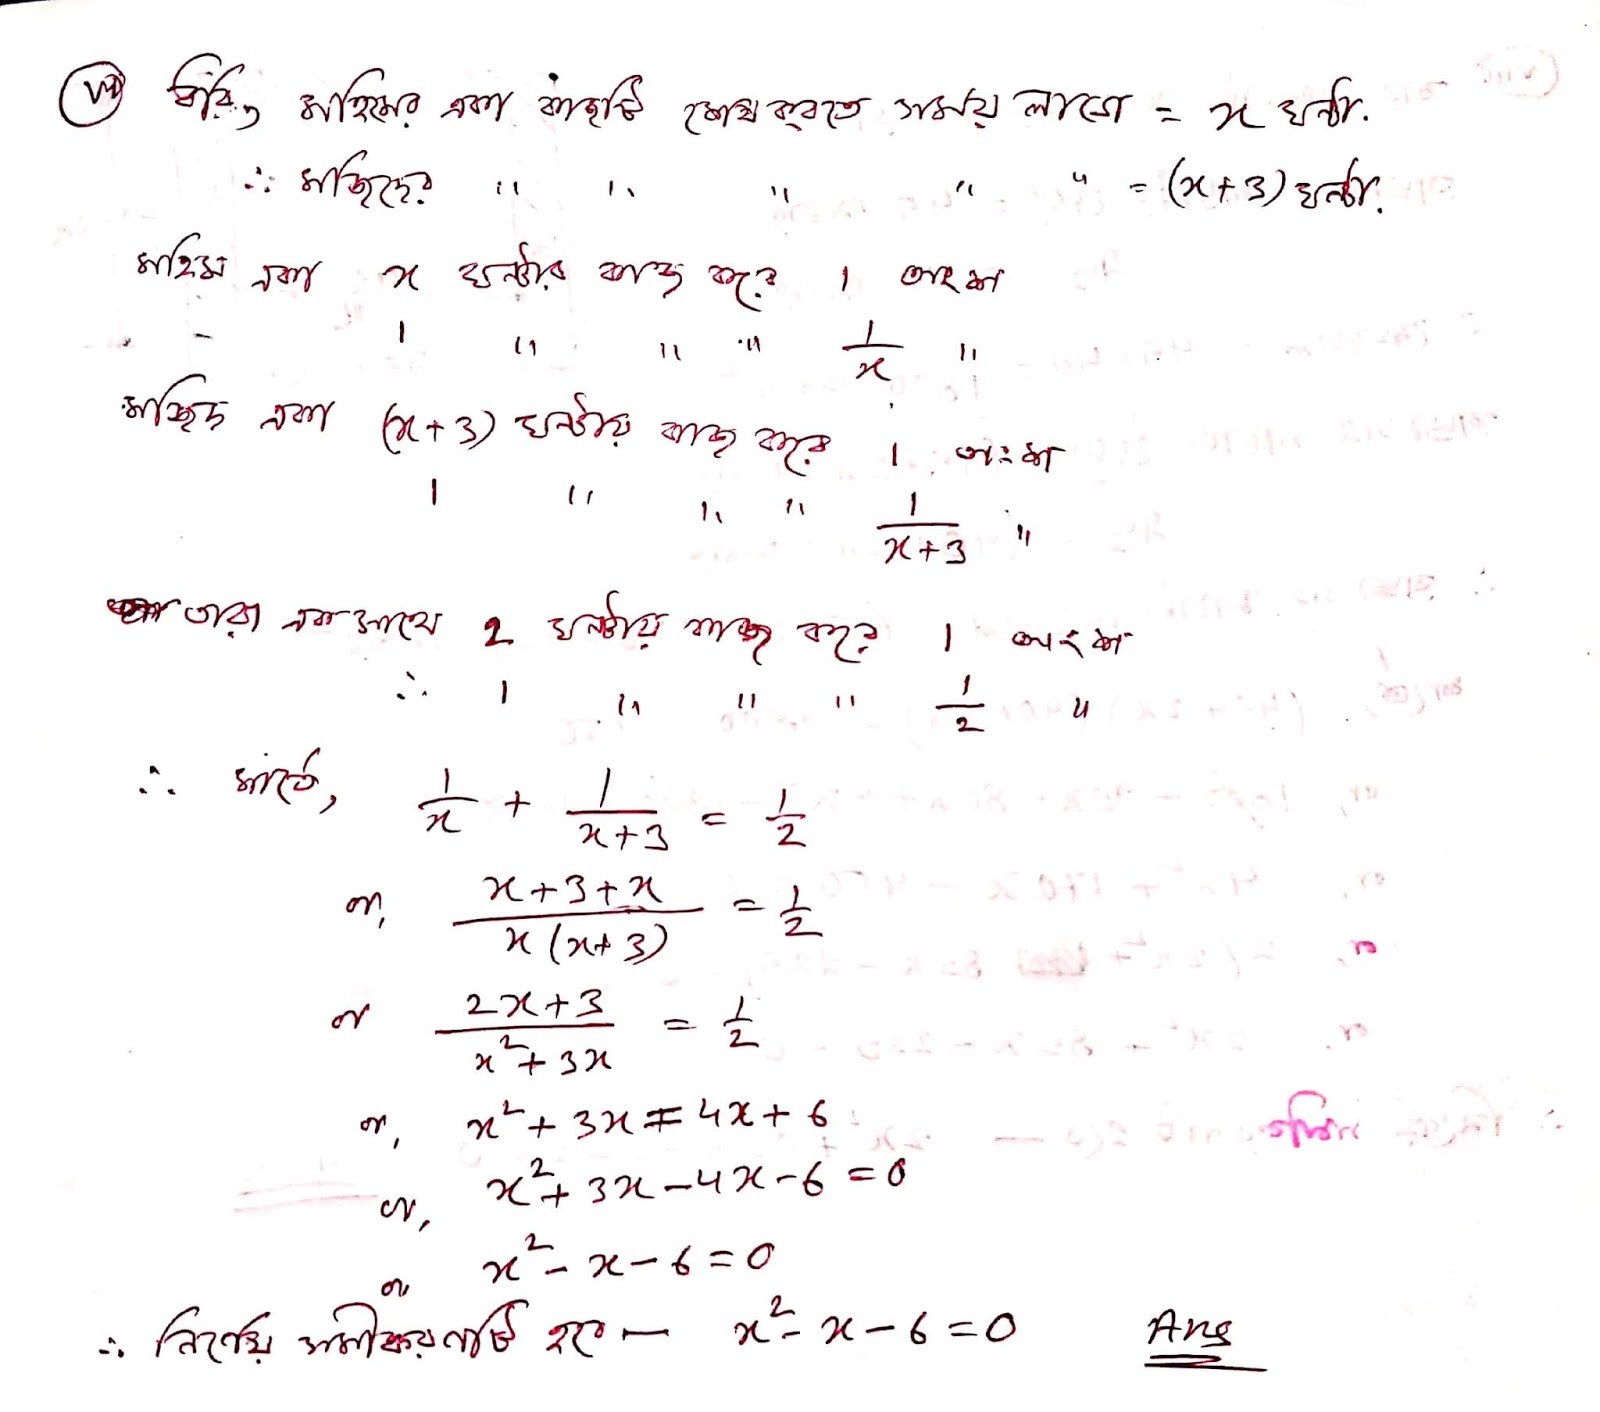 (vii) ধরি, মহিমের একা কাজটি শেষ করতে সময় লাগে = x ঘন্টা.
∴ মজিদের " " " " " = (x+3) ঘন্টা.
মহিম একা x ঘন্টায় কাজ করে 1 অংশ
- 1 " " " 1/x "
মজিদ একা (x+3) ঘন্টায় কাজ করে 1 অংশ
1 " " " 1/(x+3) "
তারা একসাথে 2 ঘন্টায় কাজ করে 1 অংশ
∴ 1 " " " 1/2 "
∴ শর্তে, 1/x + 1/(x+3) = 1/2
বা, (x+3+x)/(x(x+3)) = 1/2
বা (2x+3)/(x²+3x) = 1/2
বা, x²+3x = 4x+6
বা, x²+3x-4x-6 = 0
বা x²-x-6 = 0
∴ নির্ণেয় সমীকরণটি হবে — x²-x-6 = 0 Ans